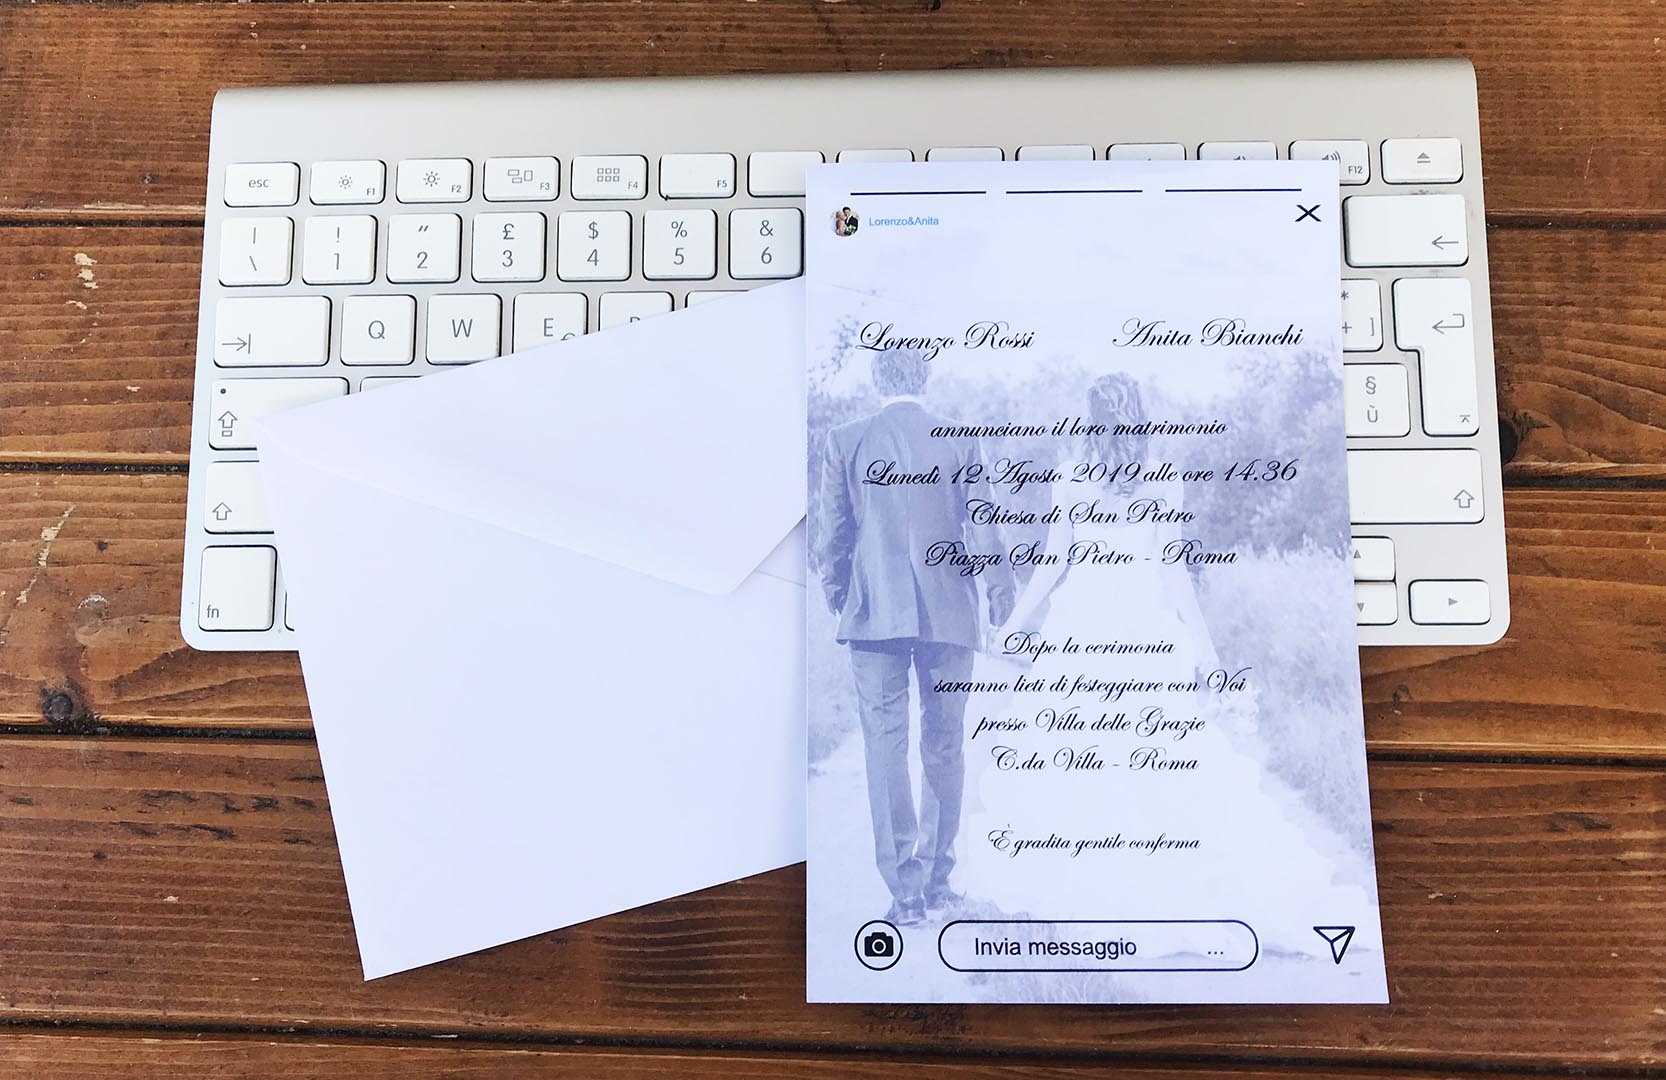 esc
F1
F2
F3
F4
F5
F12
|
\
!
1
“
2
£
3
$
4
%
5
&
6
Q
W
E
*
+ ]
§
ù
fn
Lorenzo&Anita
X
Lorenzo Rossi Anita Bianchi
annunciano il loro matrimonio
Lunedì 12 Agosto 2019 alle ore 14.36
Chiesa di San Pietro
Piazza San Pietro - Roma
Dopo la cerimonia
saranno lieti di festeggiare con Voi
presso Villa delle Grazie
C.da Villa - Roma
È gradita gentile conferma
Invia messaggio ...